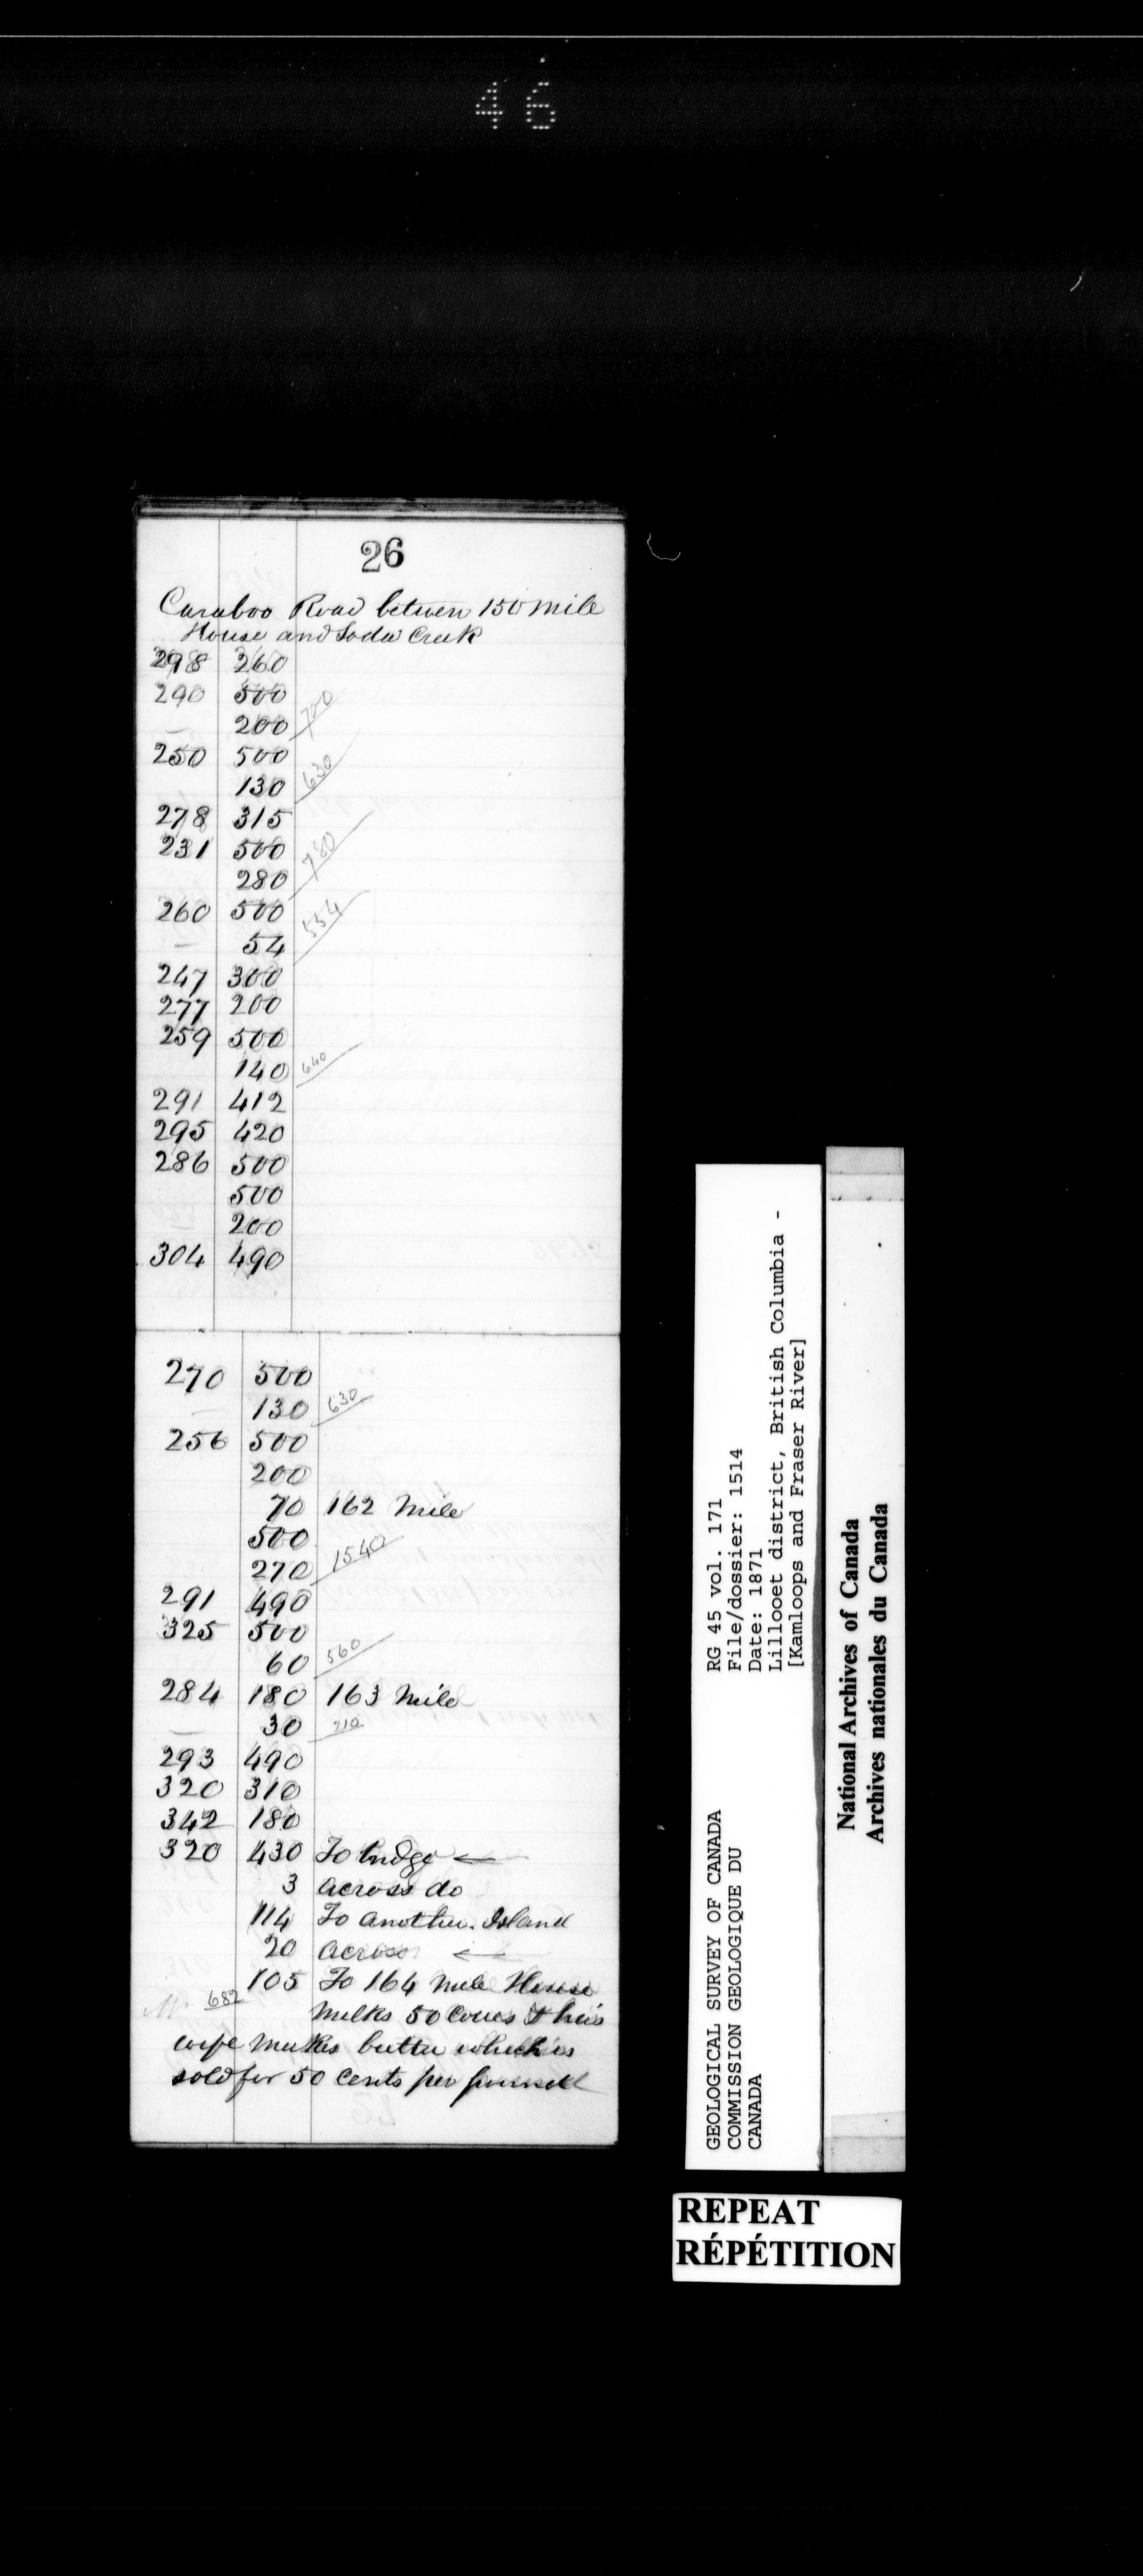 46
26
Caraboo Road between 150 mile
House and Soda Creek
298 260
290 500
200 700
— 
250 500
130 630
278 315
231 500
280 780
260 500
— 54 554
247 300
277 200
259 500
140 640
291 412
295 420
286 500
500
200
304 490
270 500
— 130 630
256 500
200
70 162 Mile
500
270 1540
291 490
325 500
60 560
284 180 163 Mile
— 30 210
293 490
320 310
342 180
320 430 To bridge ←
3 across do
114 To another Island
20 across ←
105 To 164 mile House
682
Milks 50 Cows & his
wife makes butter which is
sold for 50 Cents per pound
GEOLOGICAL SURVEY OF CANADA
COMMISSION GEOLOGIQUE DU
CANADA
RG 45 vol. 171
File/dossier: 1514
Date: 1871
Lillooet district, British Columbia -
[Kamloops and Fraser River]
National Archives of Canada
Archives nationales du Canada
REPEAT
RÉPÉTITION